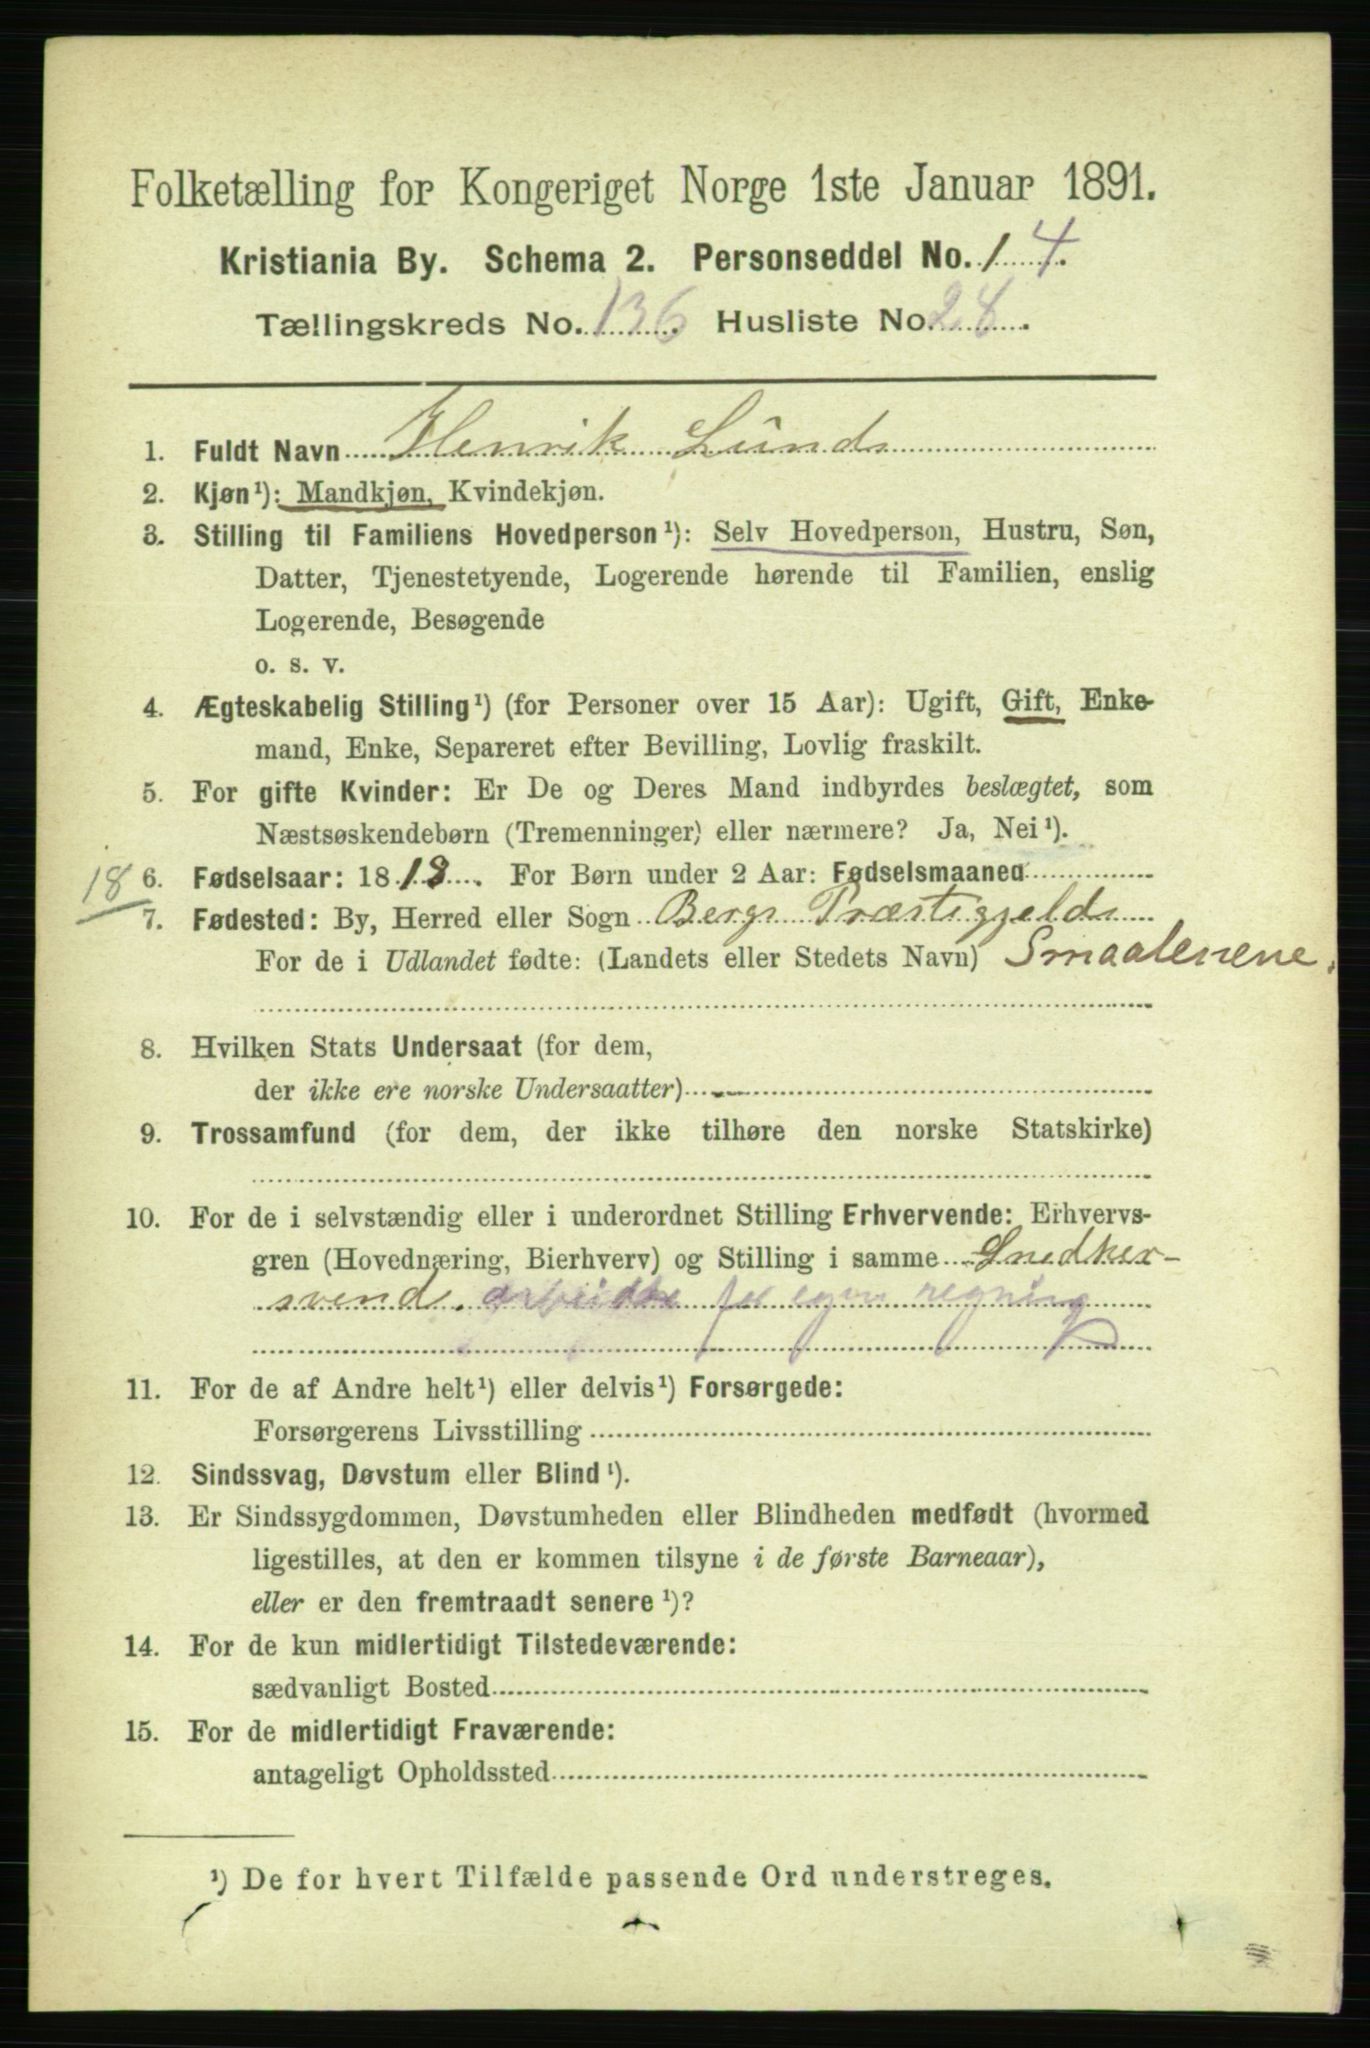 Folketælling for Kongeriget Norge 1ste Januar 1891.
Kristiania By. Schema 2. Personseddel No. 14.
Tællingskreds No. 136. Husliste No. 28.
1. Fuldt Navn Henrik Lund
2. Kjøn¹): Mandkjøn, Kvindekjøn.
3. Stilling til Familiens Hovedperson¹): Selv Hovedperson, Hustru, Søn,
Datter, Tjenestetyende, Logerende hørende til Familien, enslig
Logerende, Besøgende
o. s. v.
4. Ægteskabelig Stilling¹) (for Personer over 15 Aar): Ugift, Gift, Enke-
mand, Enke, Separeret efter Bevilling, Lovlig fraskilt.
5. For gifte Kvinder: Er De og Deres Mand indbyrdes beslægtet, som
Næstsøskendebørn (Tremenninger) eller nærmere? Ja, Nei¹).
18 6. Fødselsaar: 1818. For Børn under 2 Aar: Fødselsmaaned
7. Fødested: By, Herred eller Sogn Bergs Præstegjeld
For de i Udlandet fødte: (Landets eller Stedets Navn) Smaalenene.
8. Hvilken Stats Undersaat (for dem,
der ikke ere norske Undersaatter)
9. Trossamfund (for dem, der ikke tilhøre den norske Statskirke)
10. For de i selvstændig eller i underordnet Stilling Erhvervende: Erhvervs-
gren (Hovednæring, Bierhverv) og Stilling i samme Snedker-
svend. arbeider for egen regning
11. For de af Andre helt¹) eller delvis¹) Forsørgede:
Forsørgerens Livsstilling
12. Sindssvag, Døvstum eller Blind¹).
13. Er Sindssygdommen, Døvstumheden eller Blindheden medfødt (hvormed
ligestilles, at den er kommen tilsyne i de første Barneaar),
eller er den fremtraadt senere¹)?
14. For de kun midlertidigt Tilstedeværende:
sædvanligt Bosted
15. For de midlertidigt Fraværende:
antageligt Opholdssted
¹) De for hvert Tilfælde passende Ord understreges.